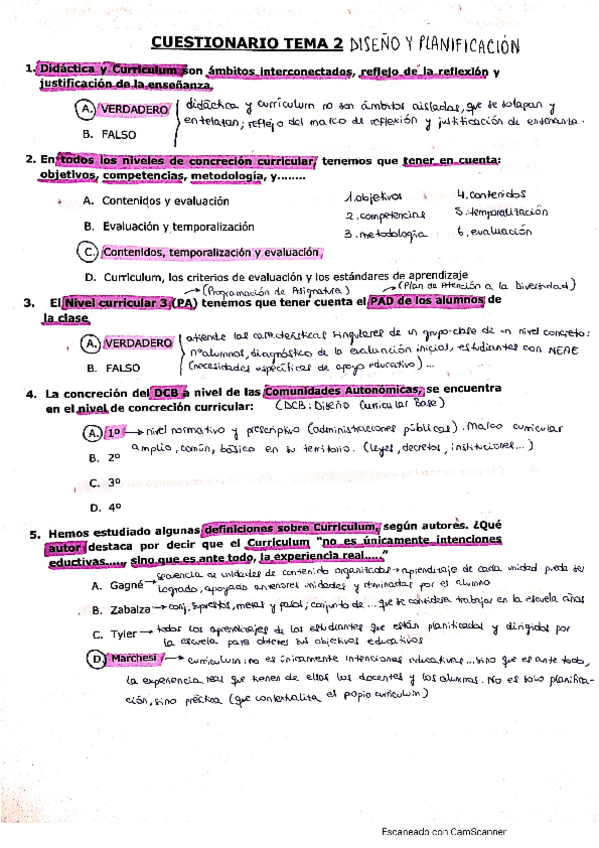 CUESTIONARIO TEMA 2 DISEÑO Y PLANIFICACIÓN
1. Didáctica y Curriculum son ámbitos interconectados, reflejo de la reflexión y
justificación de la enseñanza
A. VERDADERO
didáctica y curriculum no son ámbitos aislados, que se solapan y
entelatan; reflejo del marco de reflexión y justificación de enseñanza.
B. FALSO
2. En todos los niveles de concreción curricular, tenemos que tener en cuenta:
objetivos, competencias, metodología, y........
A. Contenidos y evaluación
B. Evaluación y temporalización
C. Contenidos, temporalización y evaluación,
1. objetivos
2. competencias
3. metodología
4. contenidos
5. temporalización
6. evaluación
D. Curriculum, los criterios de evaluación y los estándares de aprendizaje
(Programación de Asignatura) (Plan de Atención a la Diversidad)
3. El Nivel curricular 3 (PA) tenemos que tener cuenta el PAD de los alumnos de
la clase
A. VERDADERO
atiende las características singulares de un grupo-clase de un nivel concreto:
nº alumnos, diagnóstico de la evaluación inicial, estudiantes con NEAE
B. FALSO
(necesidades específicas de apoyo educativo)...
4. La concreción del DCB a nivel de las Comunidades Autonómicas, se encuentra
en el nivel de concreción curricular: (DCB: Diseño Curricular Base)
A. 1º → nivel normativo y prescriptivo (administraciones públicas). Marco curricular
amplio, común, básico en su territorio. (leyes, decretos, instituciones...)
B. 2º
C. 3º
D. 4º
5. Hemos estudiado algunas definiciones sobre Curriculum, según autores. ¿Qué
autor destaca por decir que el Curriculum "no es únicamente intenciones
eductivas....., sino que es ante todo, la experiencia real....."
A. Gagné → secuencia de unidades de contenido organizadas → aprendizaje de cada unidad pueda ser
logrado, apoyado anteriores unidades y dominadas por el alumno
B. Zabalza → conj. supuestos, metas y pasos; conjunto de... que se considera trabajar en la escuela años
C. Tyler → todos los aprendizajes de los estudiantes que están planificados y dirigidos por
la escuela para obtener sus objetivos educativos
D. Marchesi → curriculum: no es únicamente intenciones educativas... sino que es ante todo,
la experiencia real que tienen de ellas los docentes y los alumnos. No es solo planifica-
ción, sino práctica (que contextualiza el propio curriculum)
Escaneado con CamScanner